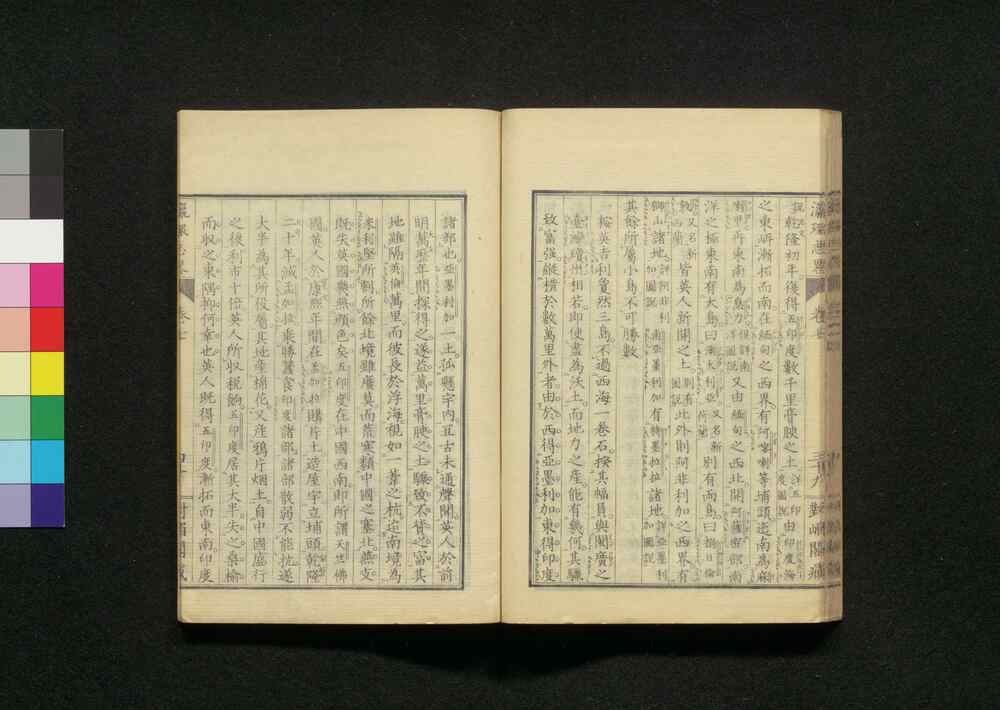 瀛環志略 卷七 三十九 對嵋閣藏
說乾隆初年復得五印度數千里膏腴之土詳五印度圖說由印度海
之東岍漸拓而南在緬甸之西界有阿喀喇等埔頭迤南為麻
喇甲再東南為息力俱詳南洋圖說又由緬甸之西北開阿薩密部南
洋之極東南有大島曰澳大利亞又名新荷蘭別有兩島曰搦日倫
敦又名新西蘭皆英人新開之土別有圖說此外則阿非利加之西界有
獅山諸地詳阿非利加圖說南亞墨利加有特墨拉拉諸地詳亞墨利加圖說
其餘所屬小島不可勝數
按英吉利夐然三島不過西海一卷石揆其幅員與閩廣之
臺灣瓊州相若即使盡為沃土而地力之產能有幾何其驟
致富強縱橫於數萬里外者由於西得亞墨利加東得印度
諸部也亞墨利加一土孤懸宇內亙古未通聲聞英人於前
明萬歷年間探得之遂益萬里膏腴之土驟致不貲之富其
地雖隔英倫萬里而彼長於浮海視如一葦之杭迨南境為
米利堅所割所餘北境雖廣莫而荒寒類中國之塞北燕支
既失英國幾無顏色矣五印度在中國西南即所謂天竺佛
國英人於康熙年間在孟加拉購片土造屋宇立埔頭乾隆
二十年滅孟加拉乘勝蠶食印度諸部諸部散弱不能抗遂
大半為其所役屬其地產棉花又產鴉片烟土自中國盛行
之後利市十倍英人所收稅餉五印度居其大半失之桑榆
而收之東隅抑何幸也英人既得五印度漸拓而東南印度
瀛環志略 卷七 四十 對嵋閣藏